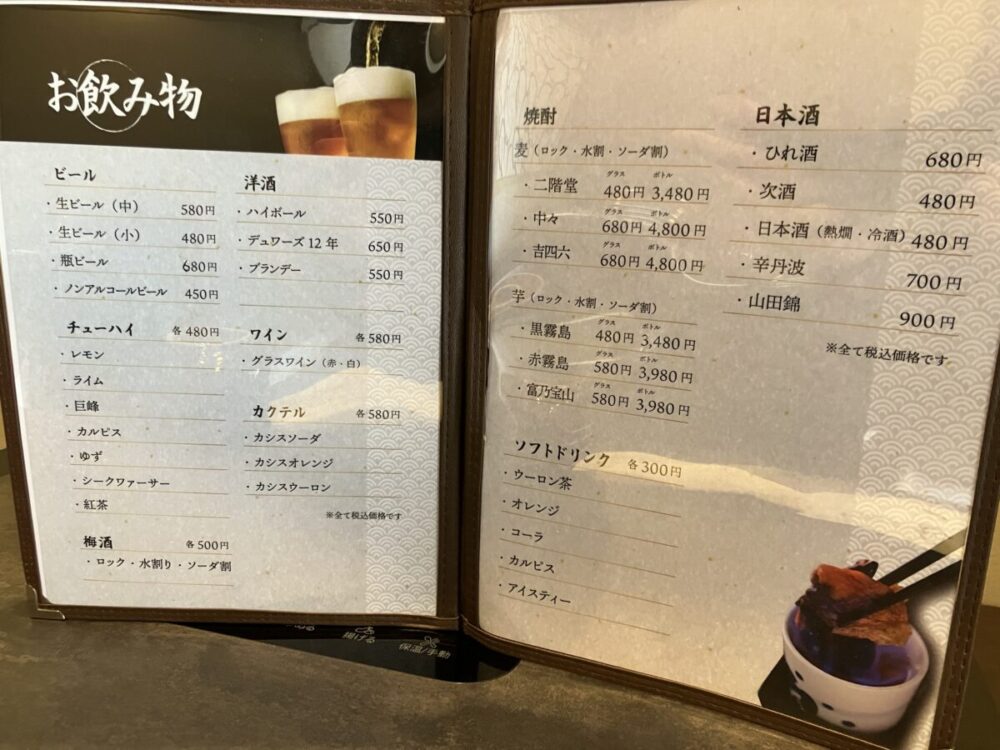 お飲み物
ビール
・生ビール（中） 580円
・生ビール（小） 480円
・瓶ビール 680円
・ノンアルコールビール 450円
チューハイ 各480円
・レモン
・ライム
・巨峰
・カルピス
・ゆず
・シークワァーサー
・紅茶
梅酒 各500円
・ロック・水割り・ソーダ割
洋酒
・ハイボール 550円
・デュワーズ12年 650円
・ブランデー 550円
ワイン 各580円
・グラスワイン（赤・白）
カクテル 各580円
・カシスソーダ
・カシスオレンジ
・カシスウーロン
※全て税込価格です
焼酎
麦（ロック・水割・ソーダ割）
グラス ボトル
・二階堂 480円 3,480円
グラス ボトル
・中々 680円 4,800円
グラス ボトル
・吉四六 680円 4,800円
芋（ロック・水割・ソーダ割）
グラス ボトル
・黒霧島 480円 3,480円
グラス ボトル
・赤霧島 580円 3,980円
グラス ボトル
・富乃宝山 580円 3,980円
ソフトドリンク 各300円
・ウーロン茶
・オレンジ
・コーラ
・カルピス
・アイスティー
日本酒
・ひれ酒 680円
・次酒 480円
・日本酒（熱燗・冷酒） 480円
・辛丹波 700円
・山田錦 900円
※全て税込価格です
揚げる
保温/手動